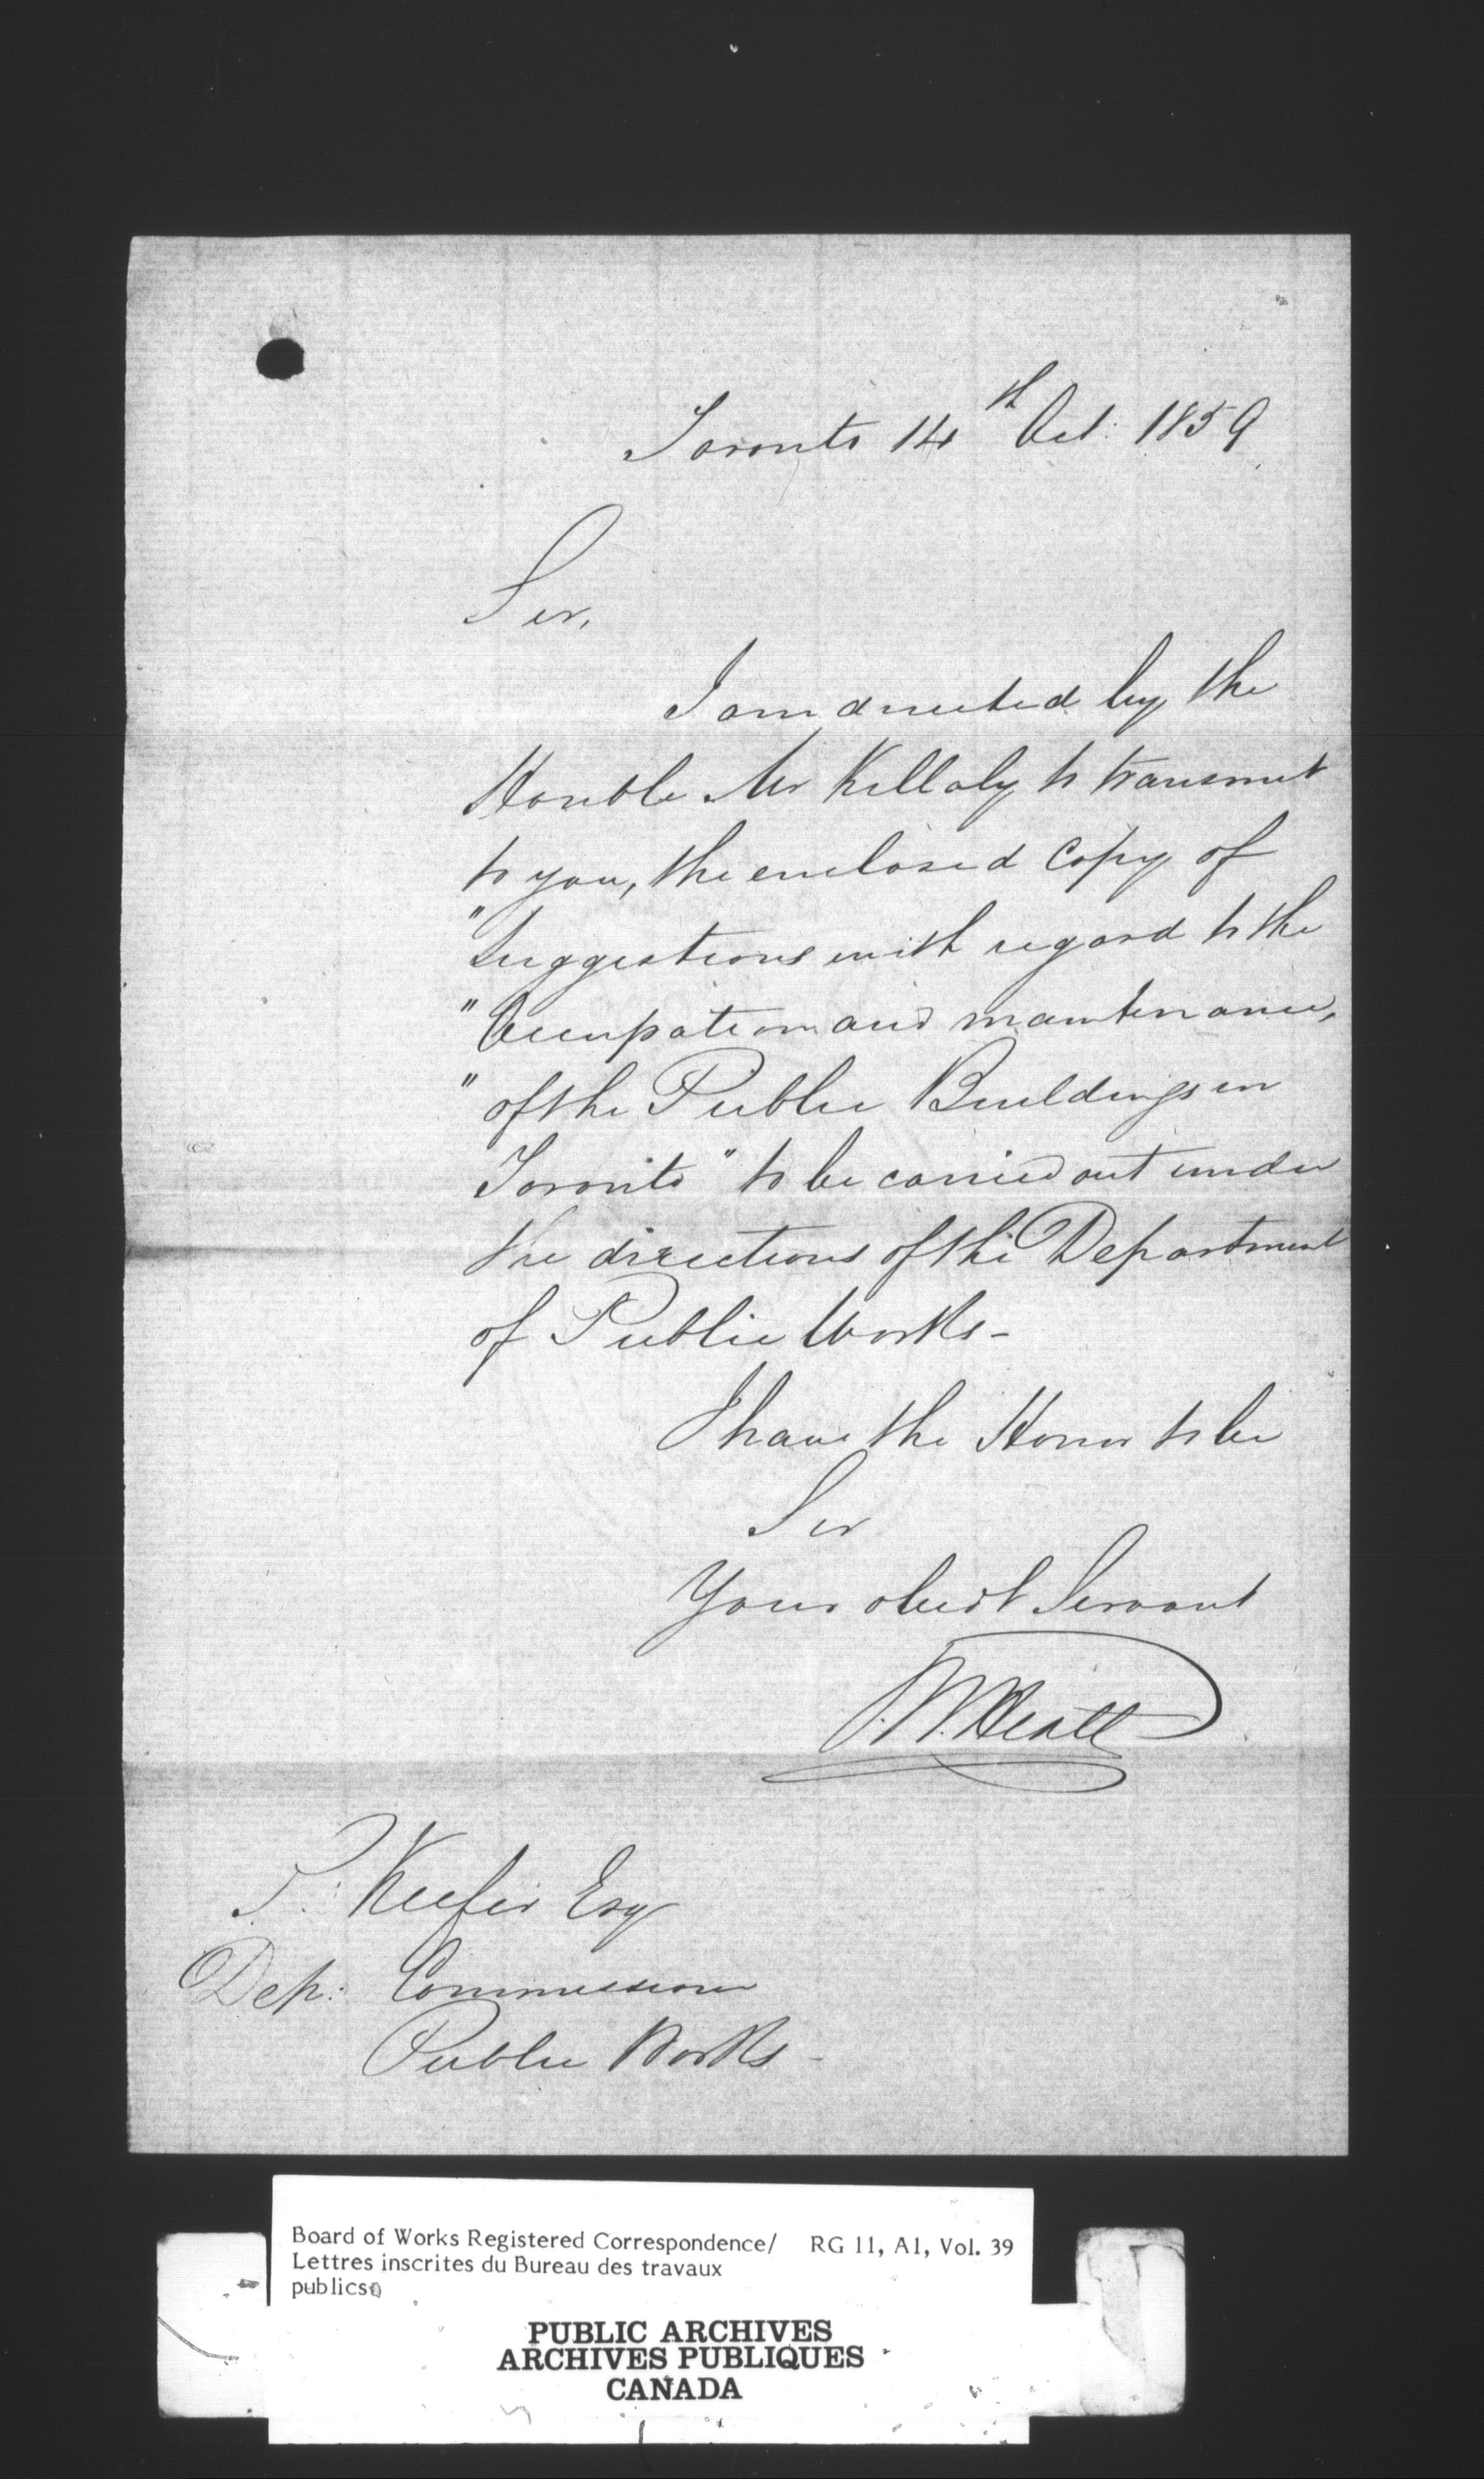 Toronto 14th Oct: 1859
Sir,
I am directed by the
Honble Mr Killaly to transmit
to you, the enclosed copy of
"Suggestions with regard to the
"Occupation and maintenance,
" of the Public Buildings in
Toronto" to be carried out under
the directions of the Department
of Public Works -
I have the Honor to be
Sir
Your obedt Servant
T: Keefer Esq
Dep: Commissioner
Public Works -
Board of Works Registered Correspondence/ RG 11, A1, Vol. 39
Lettres inscrites du Bureau des travaux
publics
PUBLIC ARCHIVES
ARCHIVES PUBLIQUES
CANADA